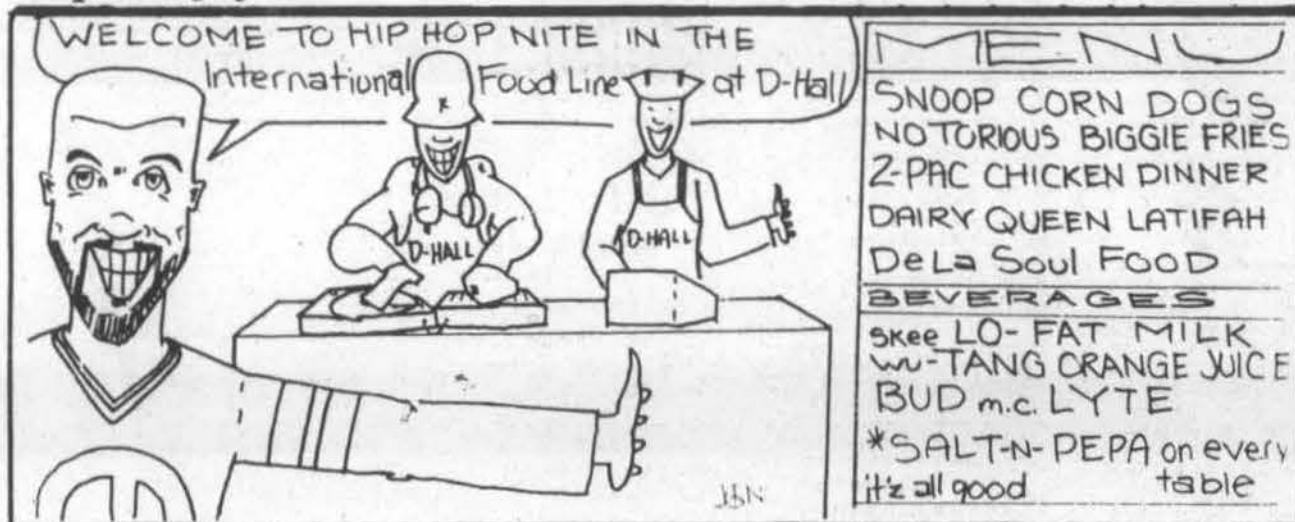 WELCOME TO HIP HOP NITE IN THE
International Food Line at D-Hall
D-HALL
D-HALL
MENU
SNOOP CORN DOGS
NOTORIOUS BIGGIE FRIES
2-PAC CHICKEN DINNER
DAIRY QUEEN LATIFAH
DeLa Soul FOOD
BEVERAGES
skee LO-FAT MILK
WU-TANG ORANGE JUICE
BUD m.c. LYTE
*SALT-N-PEPA on every
it'z all good table